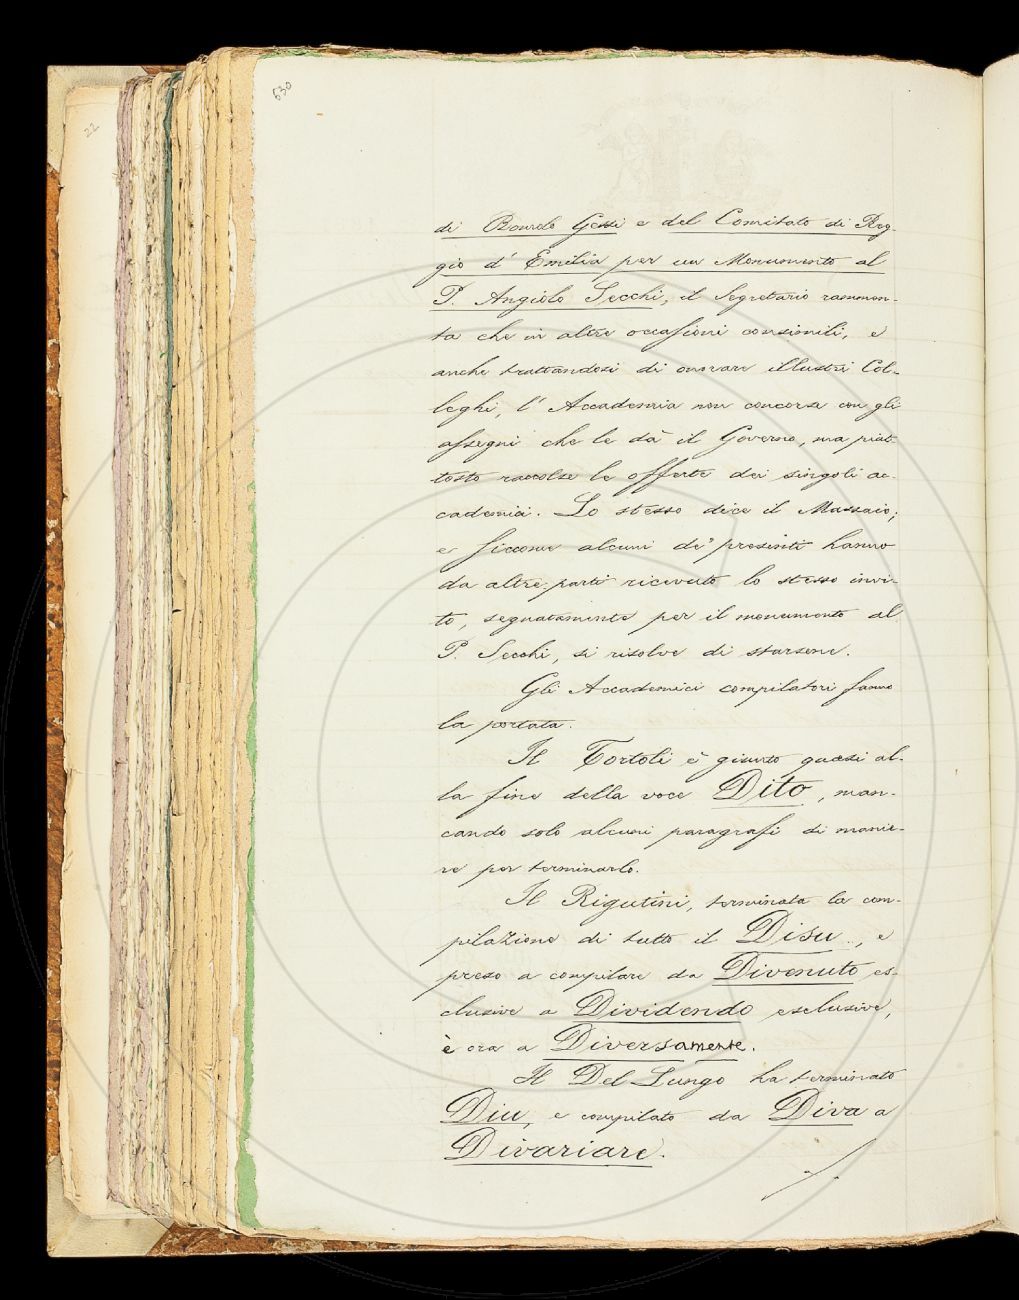 630
22
di Romolo Gessi e del Comitato di Reg-
gio d'Emilia per un Monumento al
P. Angiolo Secchi, il Segretario rammen-
ta che in altre occasioni consimili, e
anche trattandosi di onorare illustri Col-
leghi, l'Accademia non concorse con gli
assegni che le dà il Governo, ma piut-
tosto raccolse le offerte dei singoli ac-
cademici. Lo stesso dice il Massaio;
e siccome alcuni de' presenti hanno
da altre parti ricevuto lo stesso invi-
to, segnatamente per il monumento al
P. Secchi, si risolve di starsene.
Gli Accademici compilatori fanno
la portata.
Il Tortoli è giunto quasi al-
la fine della voce Dito, man-
cando solo alcuni paragrafi di manie-
re per terminarlo.
Il Rigutini, terminata la com-
pilazione di tutto il Disu.., e
preso a compilare da Divenuto es-
clusive a Dividendo esclusive,
è ora a Diversamente.
Il Del Lungo ha terminato
Diu, e compilato da Diva a
Divariare.